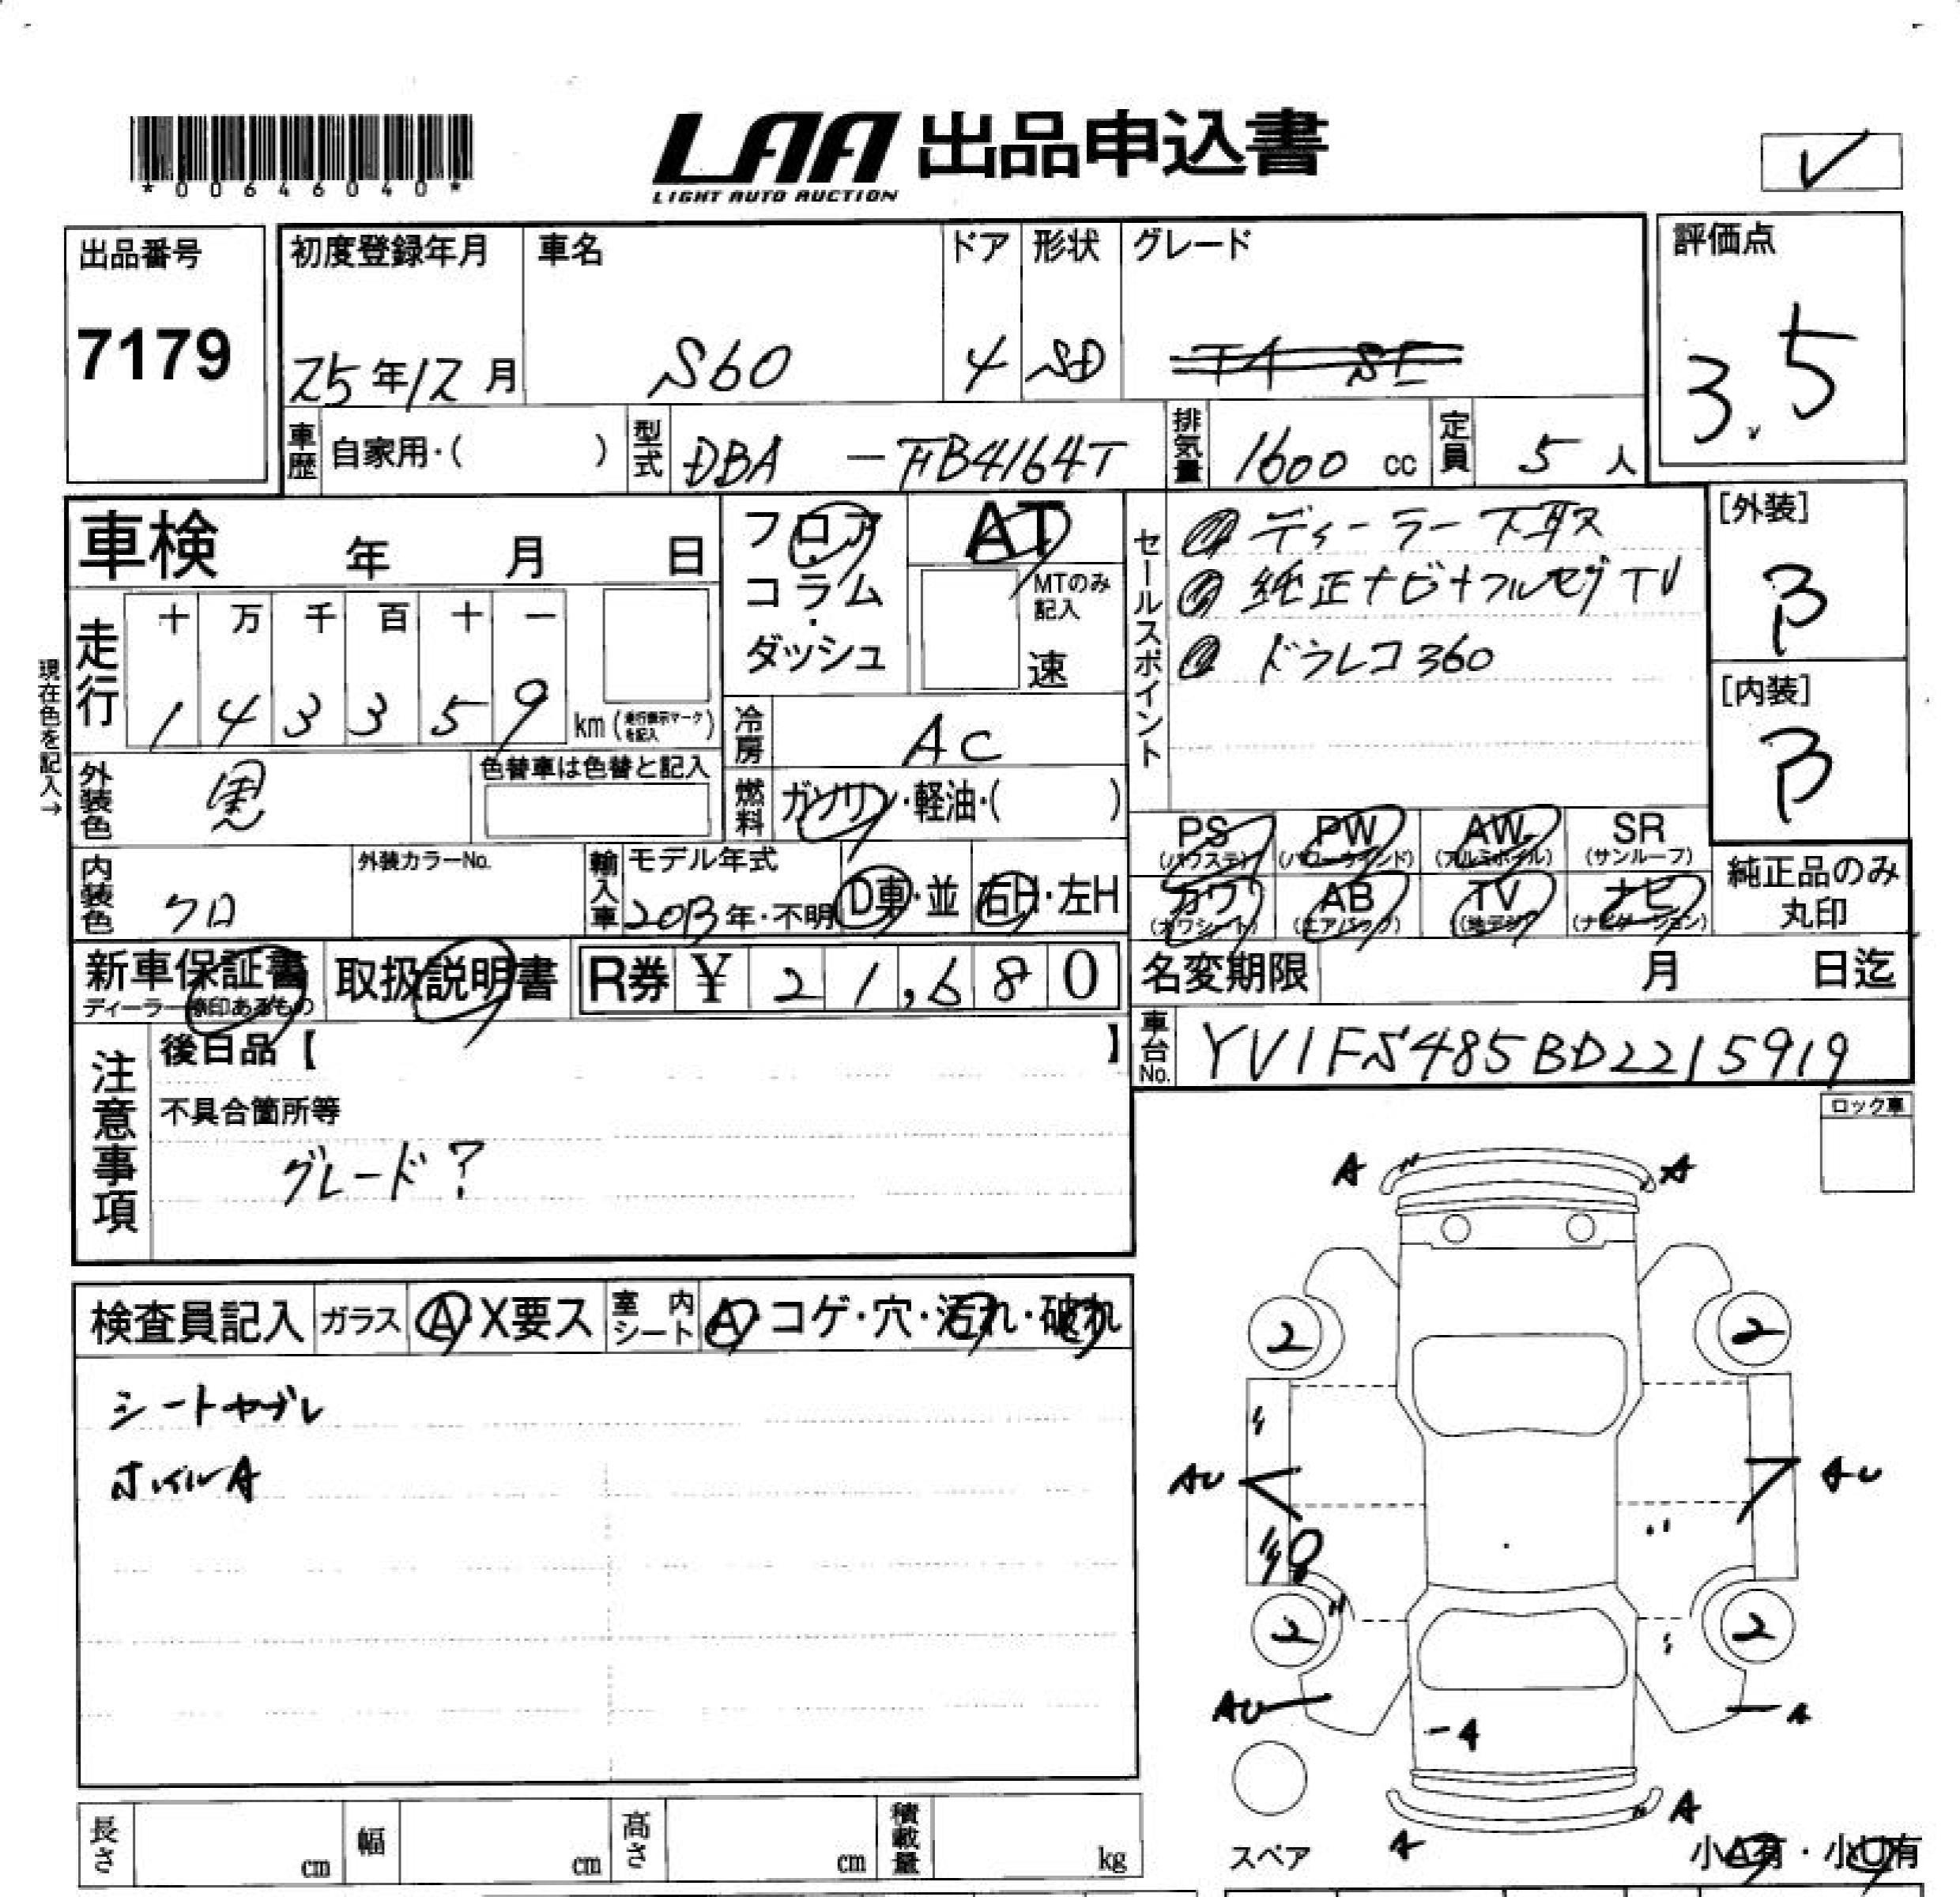 *00646040*
LAA 出品申込書
LIGHT AUTO AUCTION
✓
出品番号
7179
初度登録年月 車名 ドア 形状 グレード 評価点
25年12月 S60 4 SD T4 SE 3.5
車歴 自家用・( ) 型式 DBA - FB4164T 排気量 1600 cc 定員 5 人
車検 年 月 日
フロア・コラム・ダッシュ
AT
MTのみ記入
速
セールスポイント
① ディーラー下取ス
② 純正ナビ+フルセグTV
③ ドラレコ360
[外装]
B
[内装]
B
現在色を記入→
走行 十 万 千 百 十 一
1 4 3 3 5 9 km (走行表示マークを記入)
冷房 AC
外装色 黒 色替車は色替と記入
燃料 ガソリン・軽油・( )
PS (パワステ) PW (パワーウインド) AW (アルミホイル) SR (サンルーフ)
カワ (カワシート) AB (エアバック) TV (地デジ) ナビ (ナビゲーション)
純正品のみ丸印
内装色 クロ 外装カラーNo. 輸入車 モデル年式 2013年・不明 D車・並 右H・左H
新車保証書 ディーラー捺印あるもの 取扱説明書 R券 ¥ 21,680
名変期限 月 日迄
車台No. YV1FS485BD2215919
注意事項
後日品【 】
不具合箇所等
グレード?
ロック車
検査員記入 ガラス A・X要ス 室内シート A・コゲ・穴・汚れ・破れ
シートヤブレ
ホイルA
A A
2 2
AU AU
2 2
AU A
A
A
A
スペア
小A有・小U有
長さ cm 幅 cm 高さ cm 積載量 kg